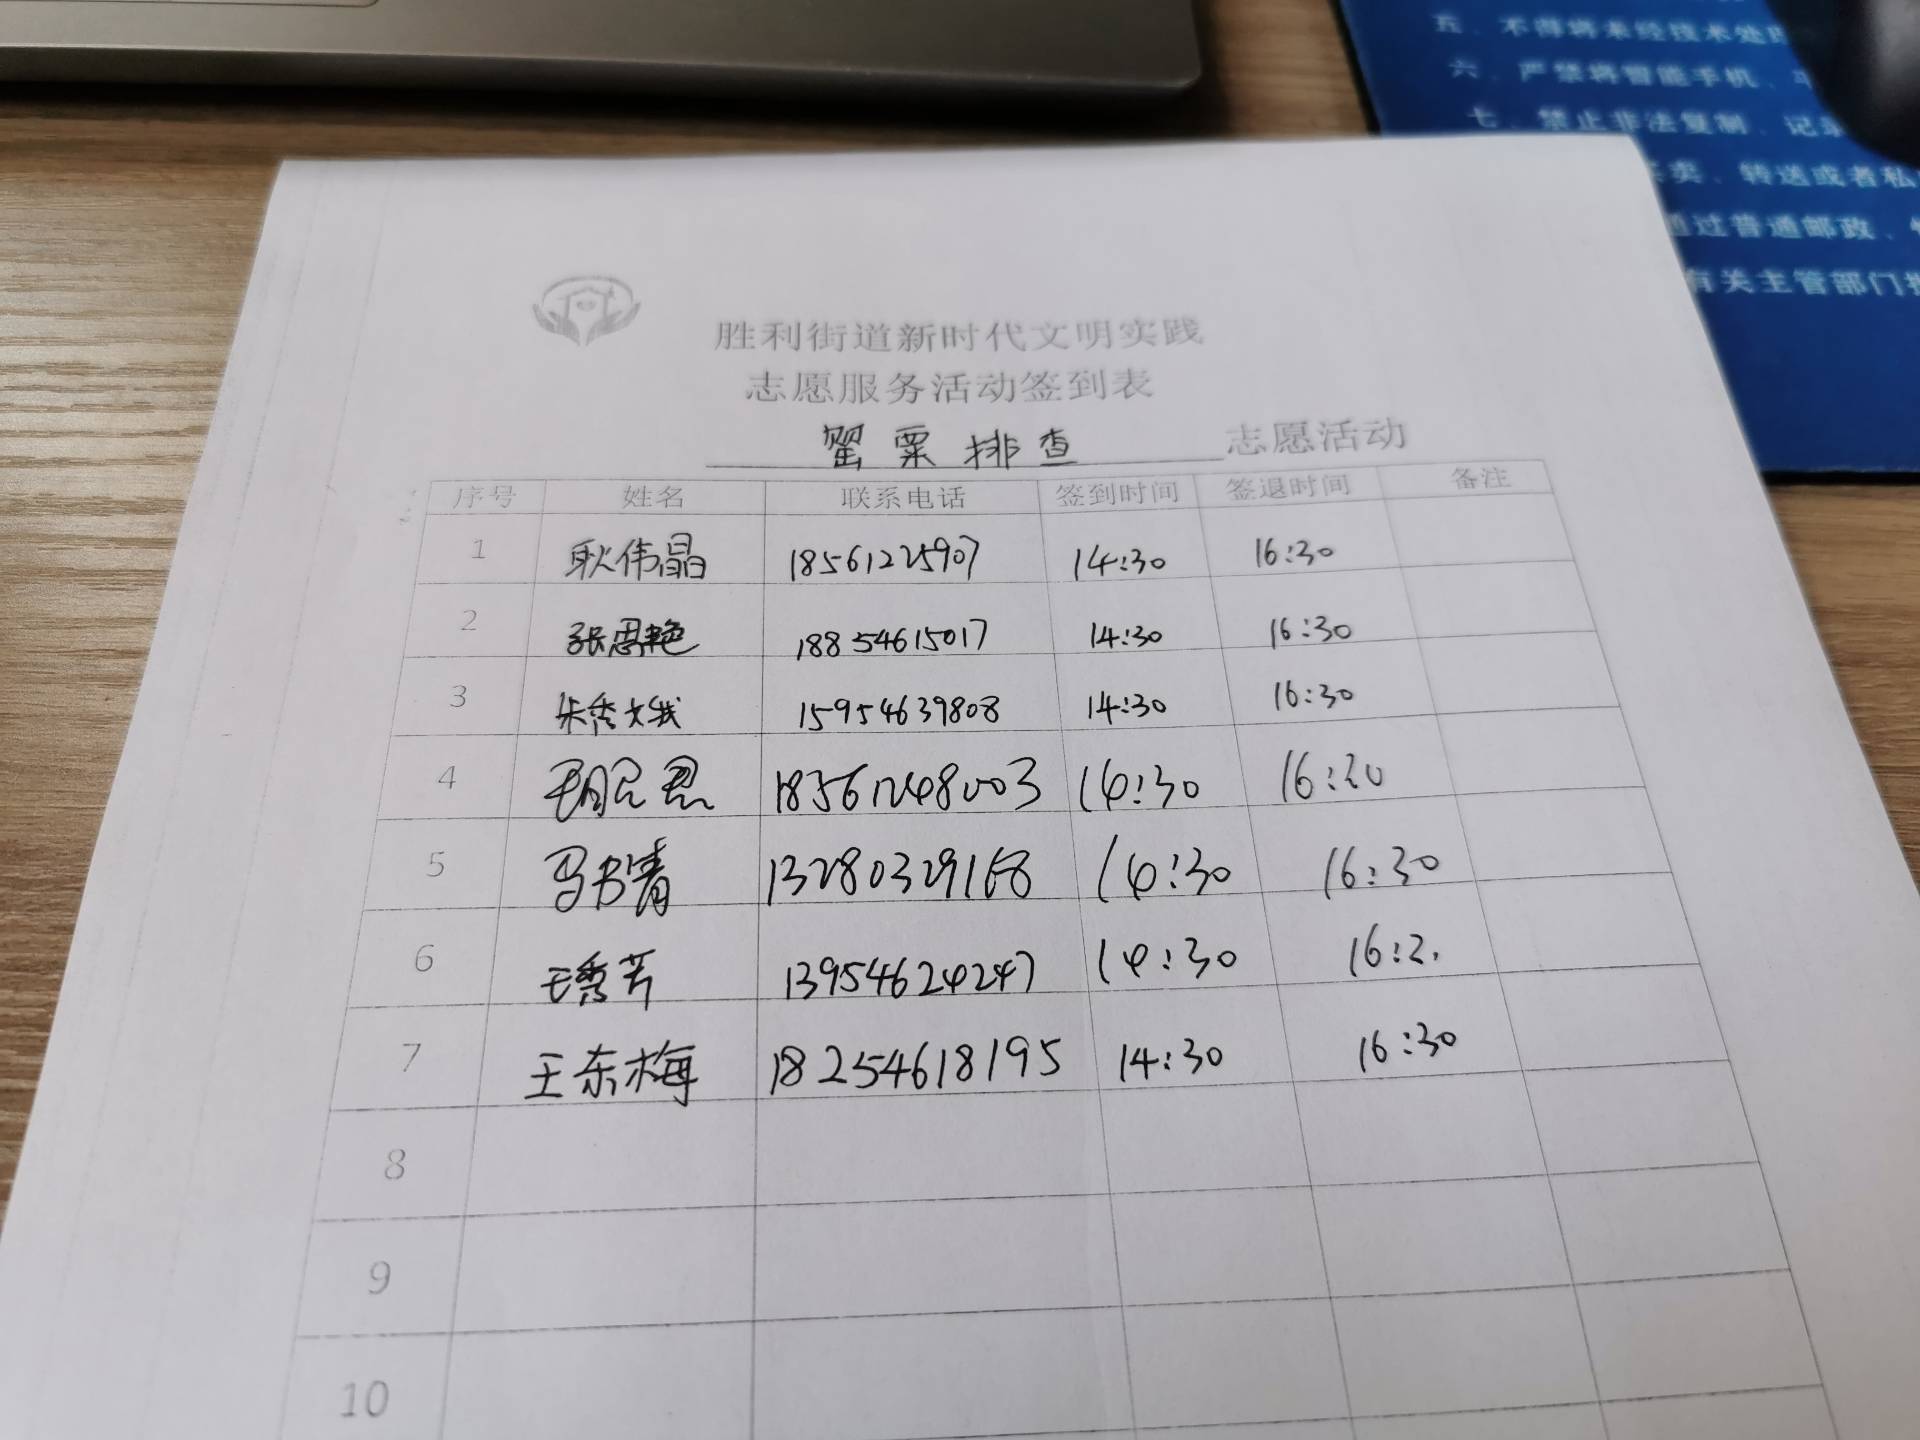 五、不得将未经技术处理
六、严禁将智能手机、
七、禁止非法复制、记录
买卖、转送或者私
通过普通邮政、
有关主管部门
胜利街道新时代文明实践
志愿服务活动签到表
罂粟排查 志愿活动
序号 姓名 联系电话 签到时间 签退时间 备注
1 耿伟晶 18561225907 14:30 16:30
2 张恩艳 18854615017 14:30 16:30
3 朱秀娥 15954639808 14:30 16:30
4 18561248003 14:30 16:30
5 马书青 13280329168 14:30 16:30
6 王秀芳 13954624247 14:30 16:2
7 王东梅 18254618195 14:30 16:30
8
9
10